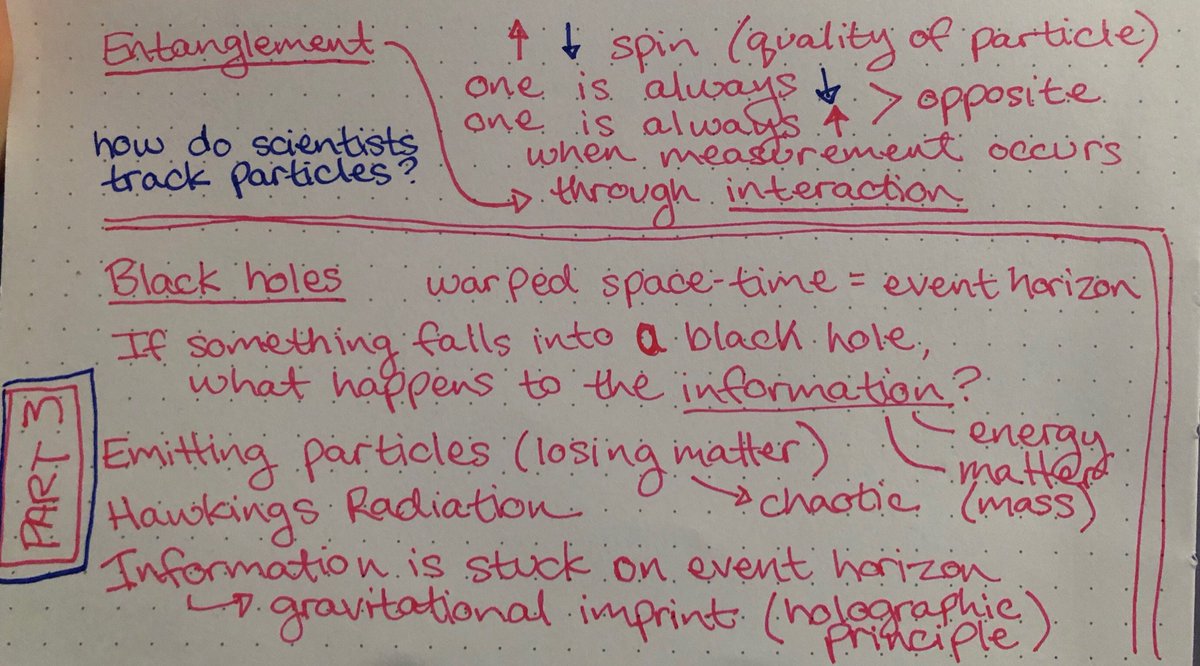 Entanglement
↑ ↓ spin (quality of particle)
one is always ↓ > opposite
one is always ↑
when measurement occurs
through interaction
how do scientists
track particles?
Black holes warped space-time = event horizon
If something falls into a black hole,
what happens to the information?
energy
matter
(mass)
Emitting particles (losing matter)
→ chaotic
Hawkings Radiation
Information is stuck on event horizon
→ gravitational imprint (holographic
principle)
PART 3